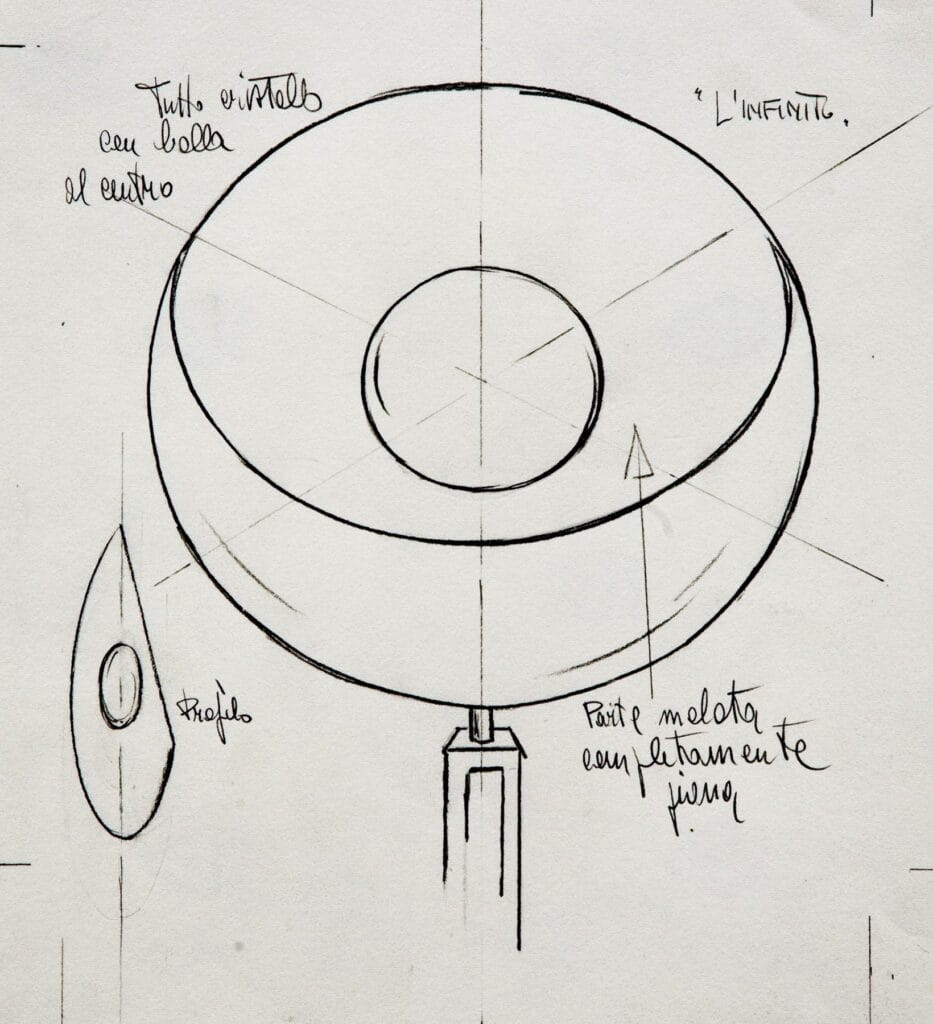 Tutto cristallo
con bolla
al centro
"L'INFINITO.
Profilo
Parte molata
completamente
piana